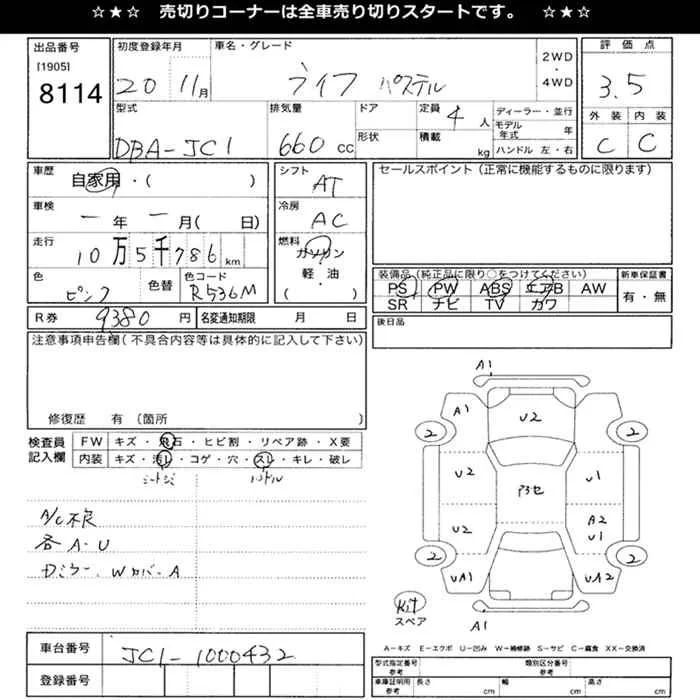 ☆★☆ 売切りコーナーは全車売り切りスタートです。 ☆★☆
出品番号
[1905]
8114
初度登録年月
20 11月
車名・グレード
ライフ パステル
2WD
・
4WD
評価点
3.5
型式
DBA-JC1
排気量
660 cc
ドア
形状
定員
4 人
積載
kg
ディーラー・並行
モデル年式 年
ハンドル 左・右
外装 内装
C C
車歴
自家用・( )
シフト
AT
セールスポイント(正常に機能するものに限ります)
車検
ー 年 ー 月( 日)
冷房
AC
走行
10万5千786km
燃料
ガソリン
軽・油
( )
色
ピンク
色替
色コード
R536M
装備品(純正品に限り○をつけてください)
PS PW ABS エアB AW
SR ナビ TV カワ
新車保証書
有・無
R券 9380 円 名変通知期限 月 日
後日品
注意事項申告欄(不具合内容等は具体的に記入して下さい)
修復歴 有 〔箇所 〕
検査員
記入欄
FW キズ・飛石・ヒビ割・リペア跡・X要
内装 キズ・汚レ・コゲ・穴・スレ・キレ・破レ
シート ハンドル
A/C不良
各A・U
Dミラー、WカバーA
A1
A1
U2
2
2
U2
U1
U2
A2
U1
2
2
UA1
UA2
Kit
スペア
A1
車台番号
JC1-1000432
登録番号
A－キズ E－エクボ U－凹み W－補修跡 S－サビ C－腐食 XX－交換済
型式指定番号
参考
類別区分番号
参考
車庫証明用
参考
長さ cm
幅 cm
高さ cm